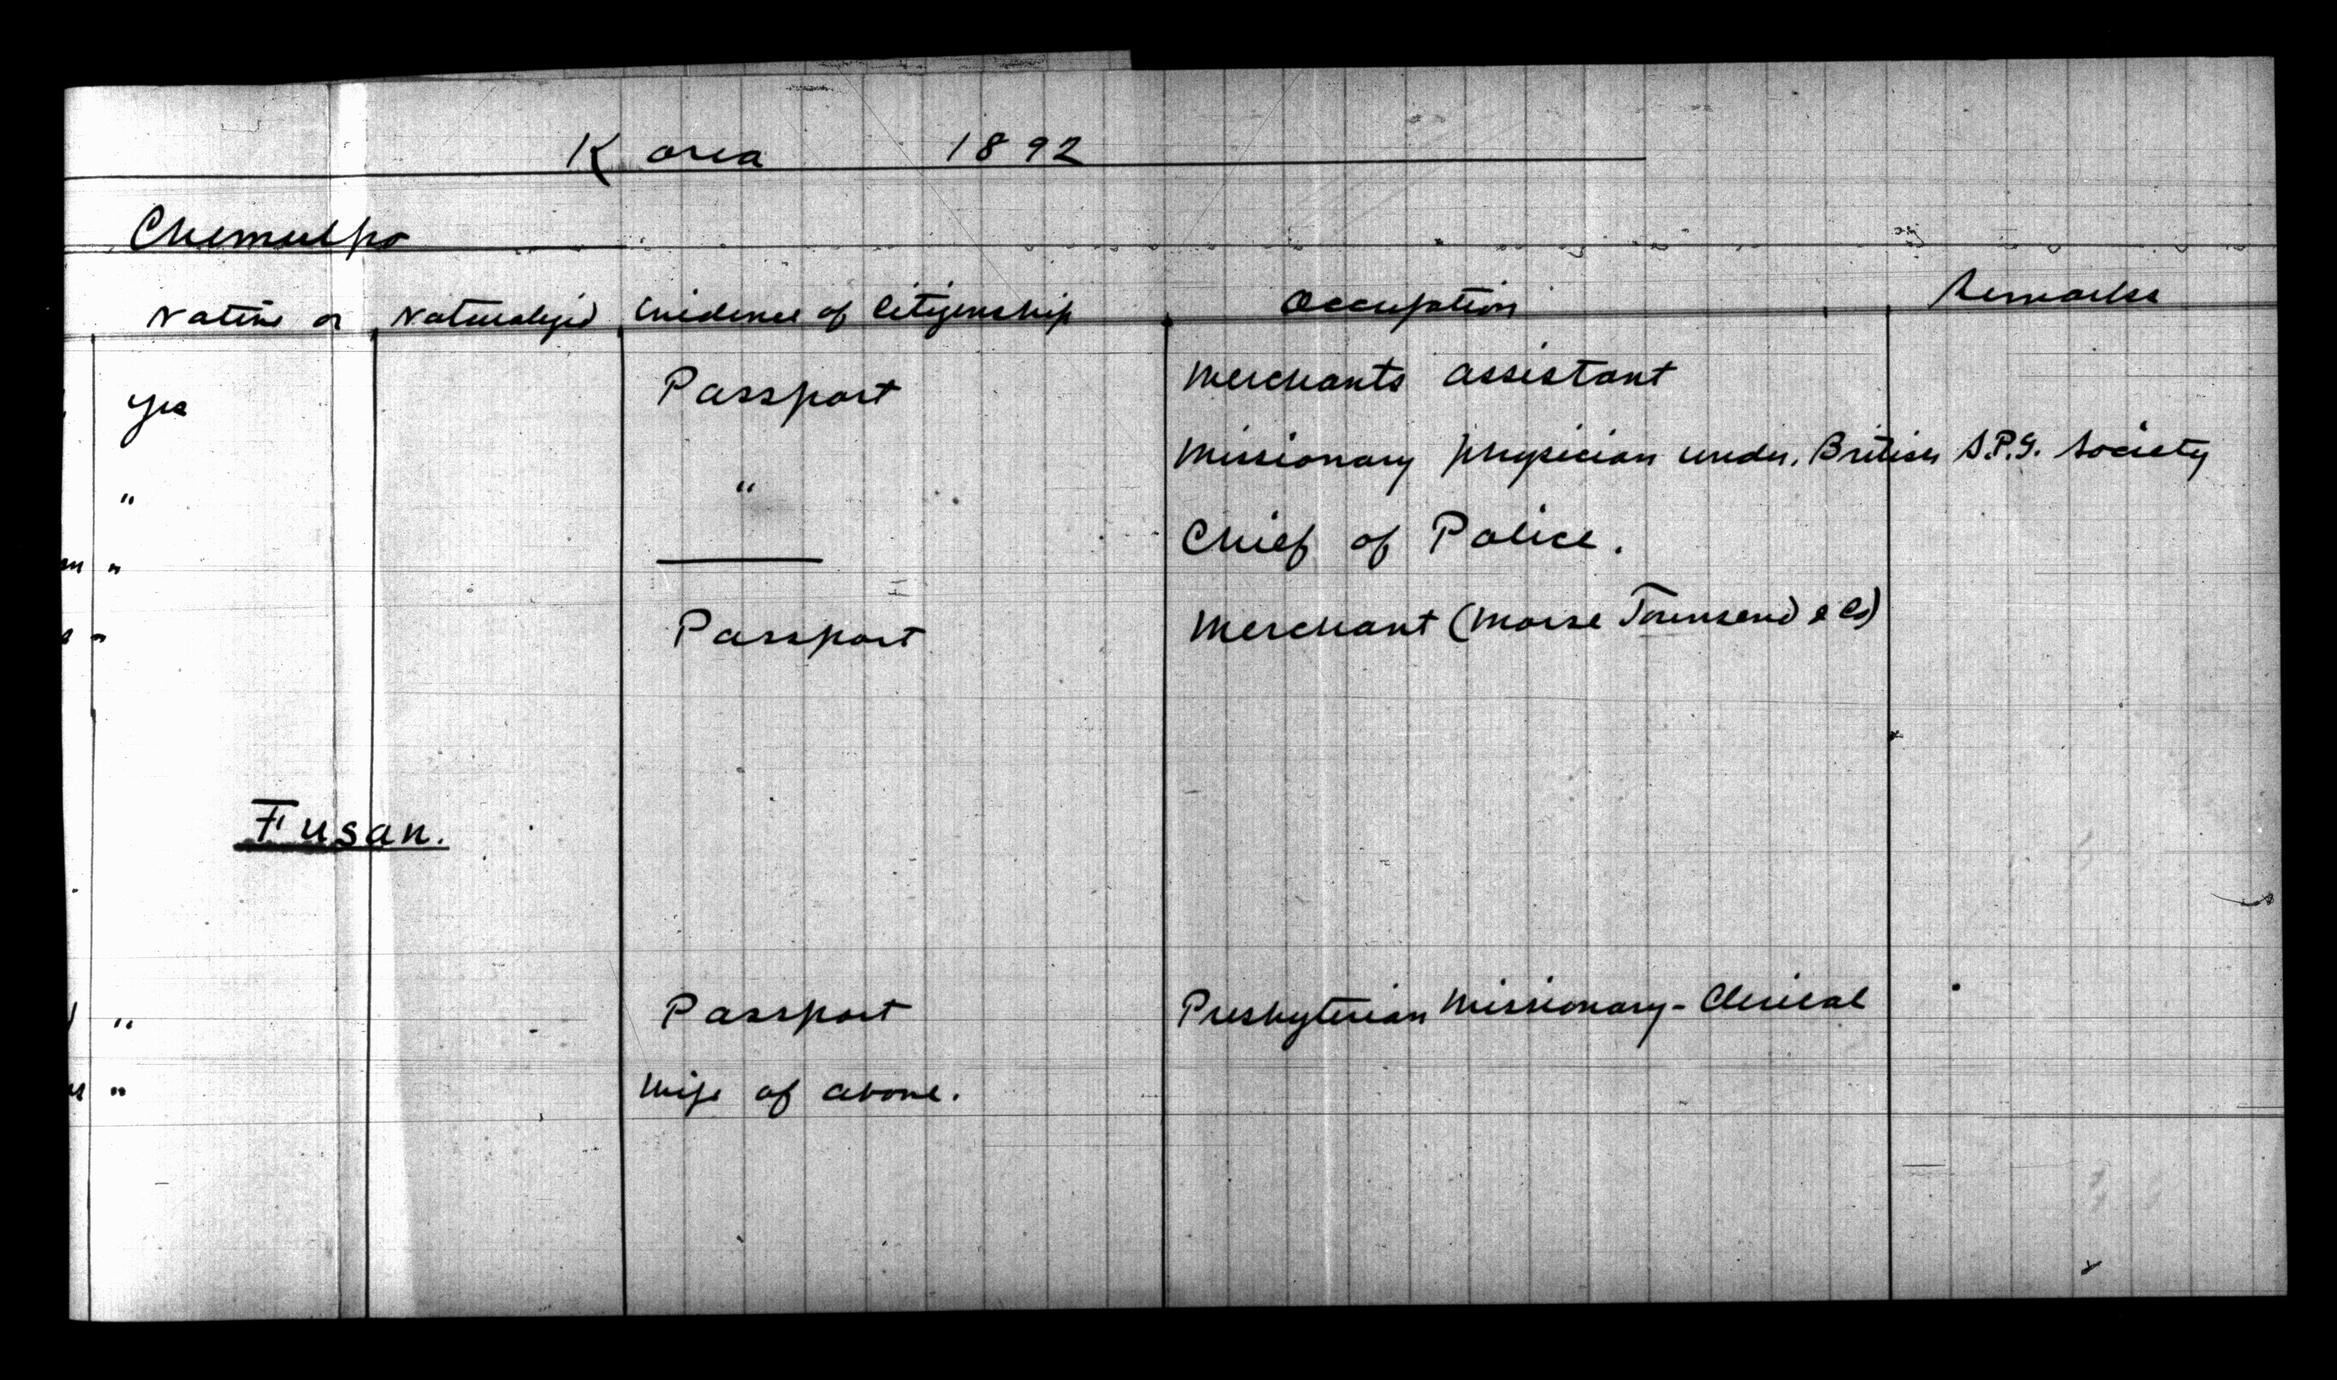 Korea 1892
Chemulpo
Native or Naturalized Evidence of Citizenship Occupation Remarks
Yes Passport Merchants assistant
" " Missionary physician under British S.P.G. Society
" —— Chief of Police.
" Passport Merchant (Morse Townsend & Co)
Fusan.
" Passport Presbyterian Missionary - Clerical
" Wife of above.